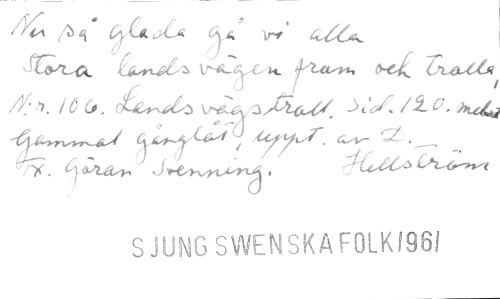 Nu så glada gå vi alla
stora landsvägen fram och tralla,
N:r. 106. Landsvägstrall. Sid. 120. mel:
Gammal gånglåt, uppt. av Z.
Tx. Göran Svenning. Hellström
SJUNG SWENSKA FOLK 1961